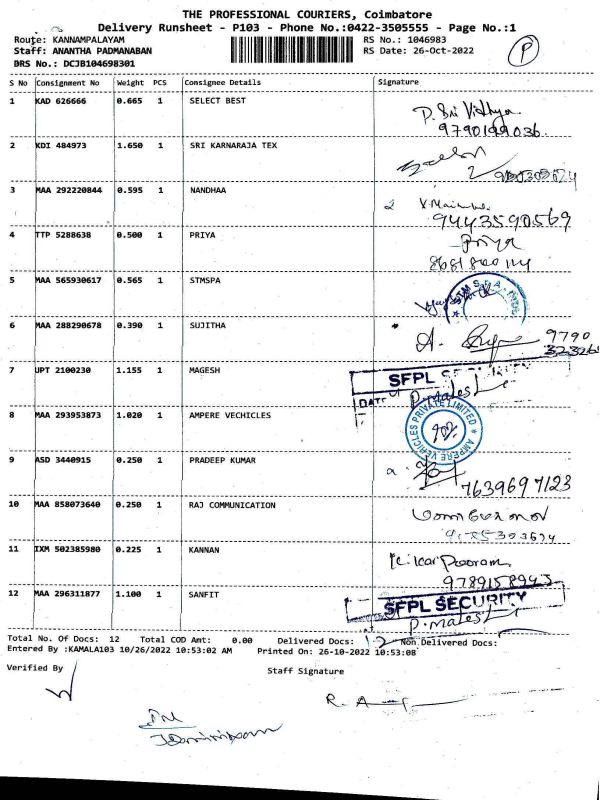 THE PROFESSIONAL COURIERS, Coimbatore
Delivery Runsheet - P103 - Phone No.:0422-3505555 - Page No.:1
Route: KANNAMPALAYAM RS No.: 1046983
Staff: ANANTHA PADMANABAN RS Date: 26-Oct-2022 P
DRS No.: DCJB104698301
S No Consignment No Weight PCS Consignee Details Signature
1 KAD 626666 0.665 1 SELECT BEST P. Sri Vidhya
9790199036.
2 KDI 484973 1.650 1 SRI KARNARAJA TEX
3 MAA 292220844 0.595 1 NANDHAA
9443590569
4 TTP 5288638 0.500 1 PRIYA Priya
5 MAA 565930617 0.565 1 STMSPA
6 MAA 288290678 0.390 1 SUJITHA A. 9790
7 UPT 2100230 1.155 1 MAGESH SFPL SECURITY
DATE
8 MAA 293953873 1.020 1 AMPERE VECHICLES AMPERE VEHICLES PRIVATE LIMITED
9 ASD 3440915 0.250 1 PRADEEP KUMAR
7639697123
10 MAA 858073640 0.250 1 RAJ COMMUNICATION
11 IXM 502385980 0.225 1 KANNAN
9789158943
12 MAA 296311877 1.100 1 SANFIT SFPL SECURITY
Total No. Of Docs: 12 Total COD Amt: 0.00 Delivered Docs: 12 Non Delivered Docs:
Entered By :KAMALA103 10/26/2022 10:53:02 AM Printed On: 26-10-2022 10:53:08
Verified By Staff Signature